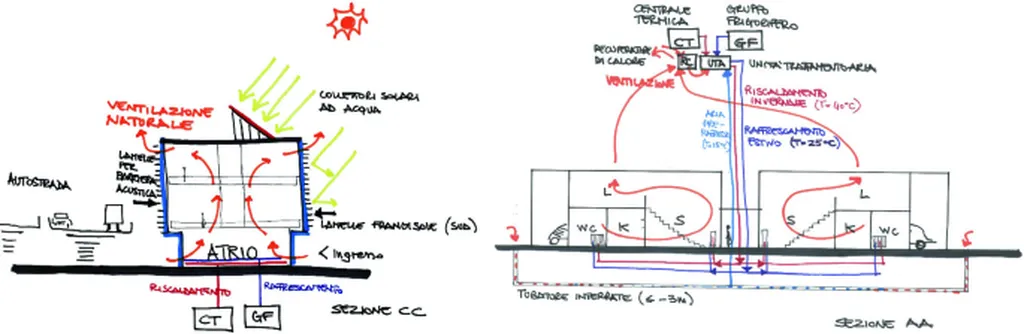 COLLETTORI SOLARI
AD ACQUA
VENTILAZIONE
NATURALE
LAMELLE
PER
BARRIERA
ACUSTICA
AUTOSTRADA
LAMELLE FRANGISOLE (SUD)
ATRIO
< Ingresso
RISCALDAMENTO
RAFFRESCAMENTO
CT
GF
SEZIONE CC
CENTRALE
TERMICA
GRUPPO
FRIGORIFERO
CT
GF
RECUPERATORE
DI CALORE
RC
UTA
UNITA' TRATTAMENTO ARIA
VENTILAZIONE
RISCALDAMENTO
INVERNALE (T=40°C)
ARIA
PRE-
RAFFRESCAMENTO
ESTIVO (T=25°C)
L
WC
K
S
L
S
K
WC
TUBATURE INTERRATE (≤ -3m)
SEZIONE AA